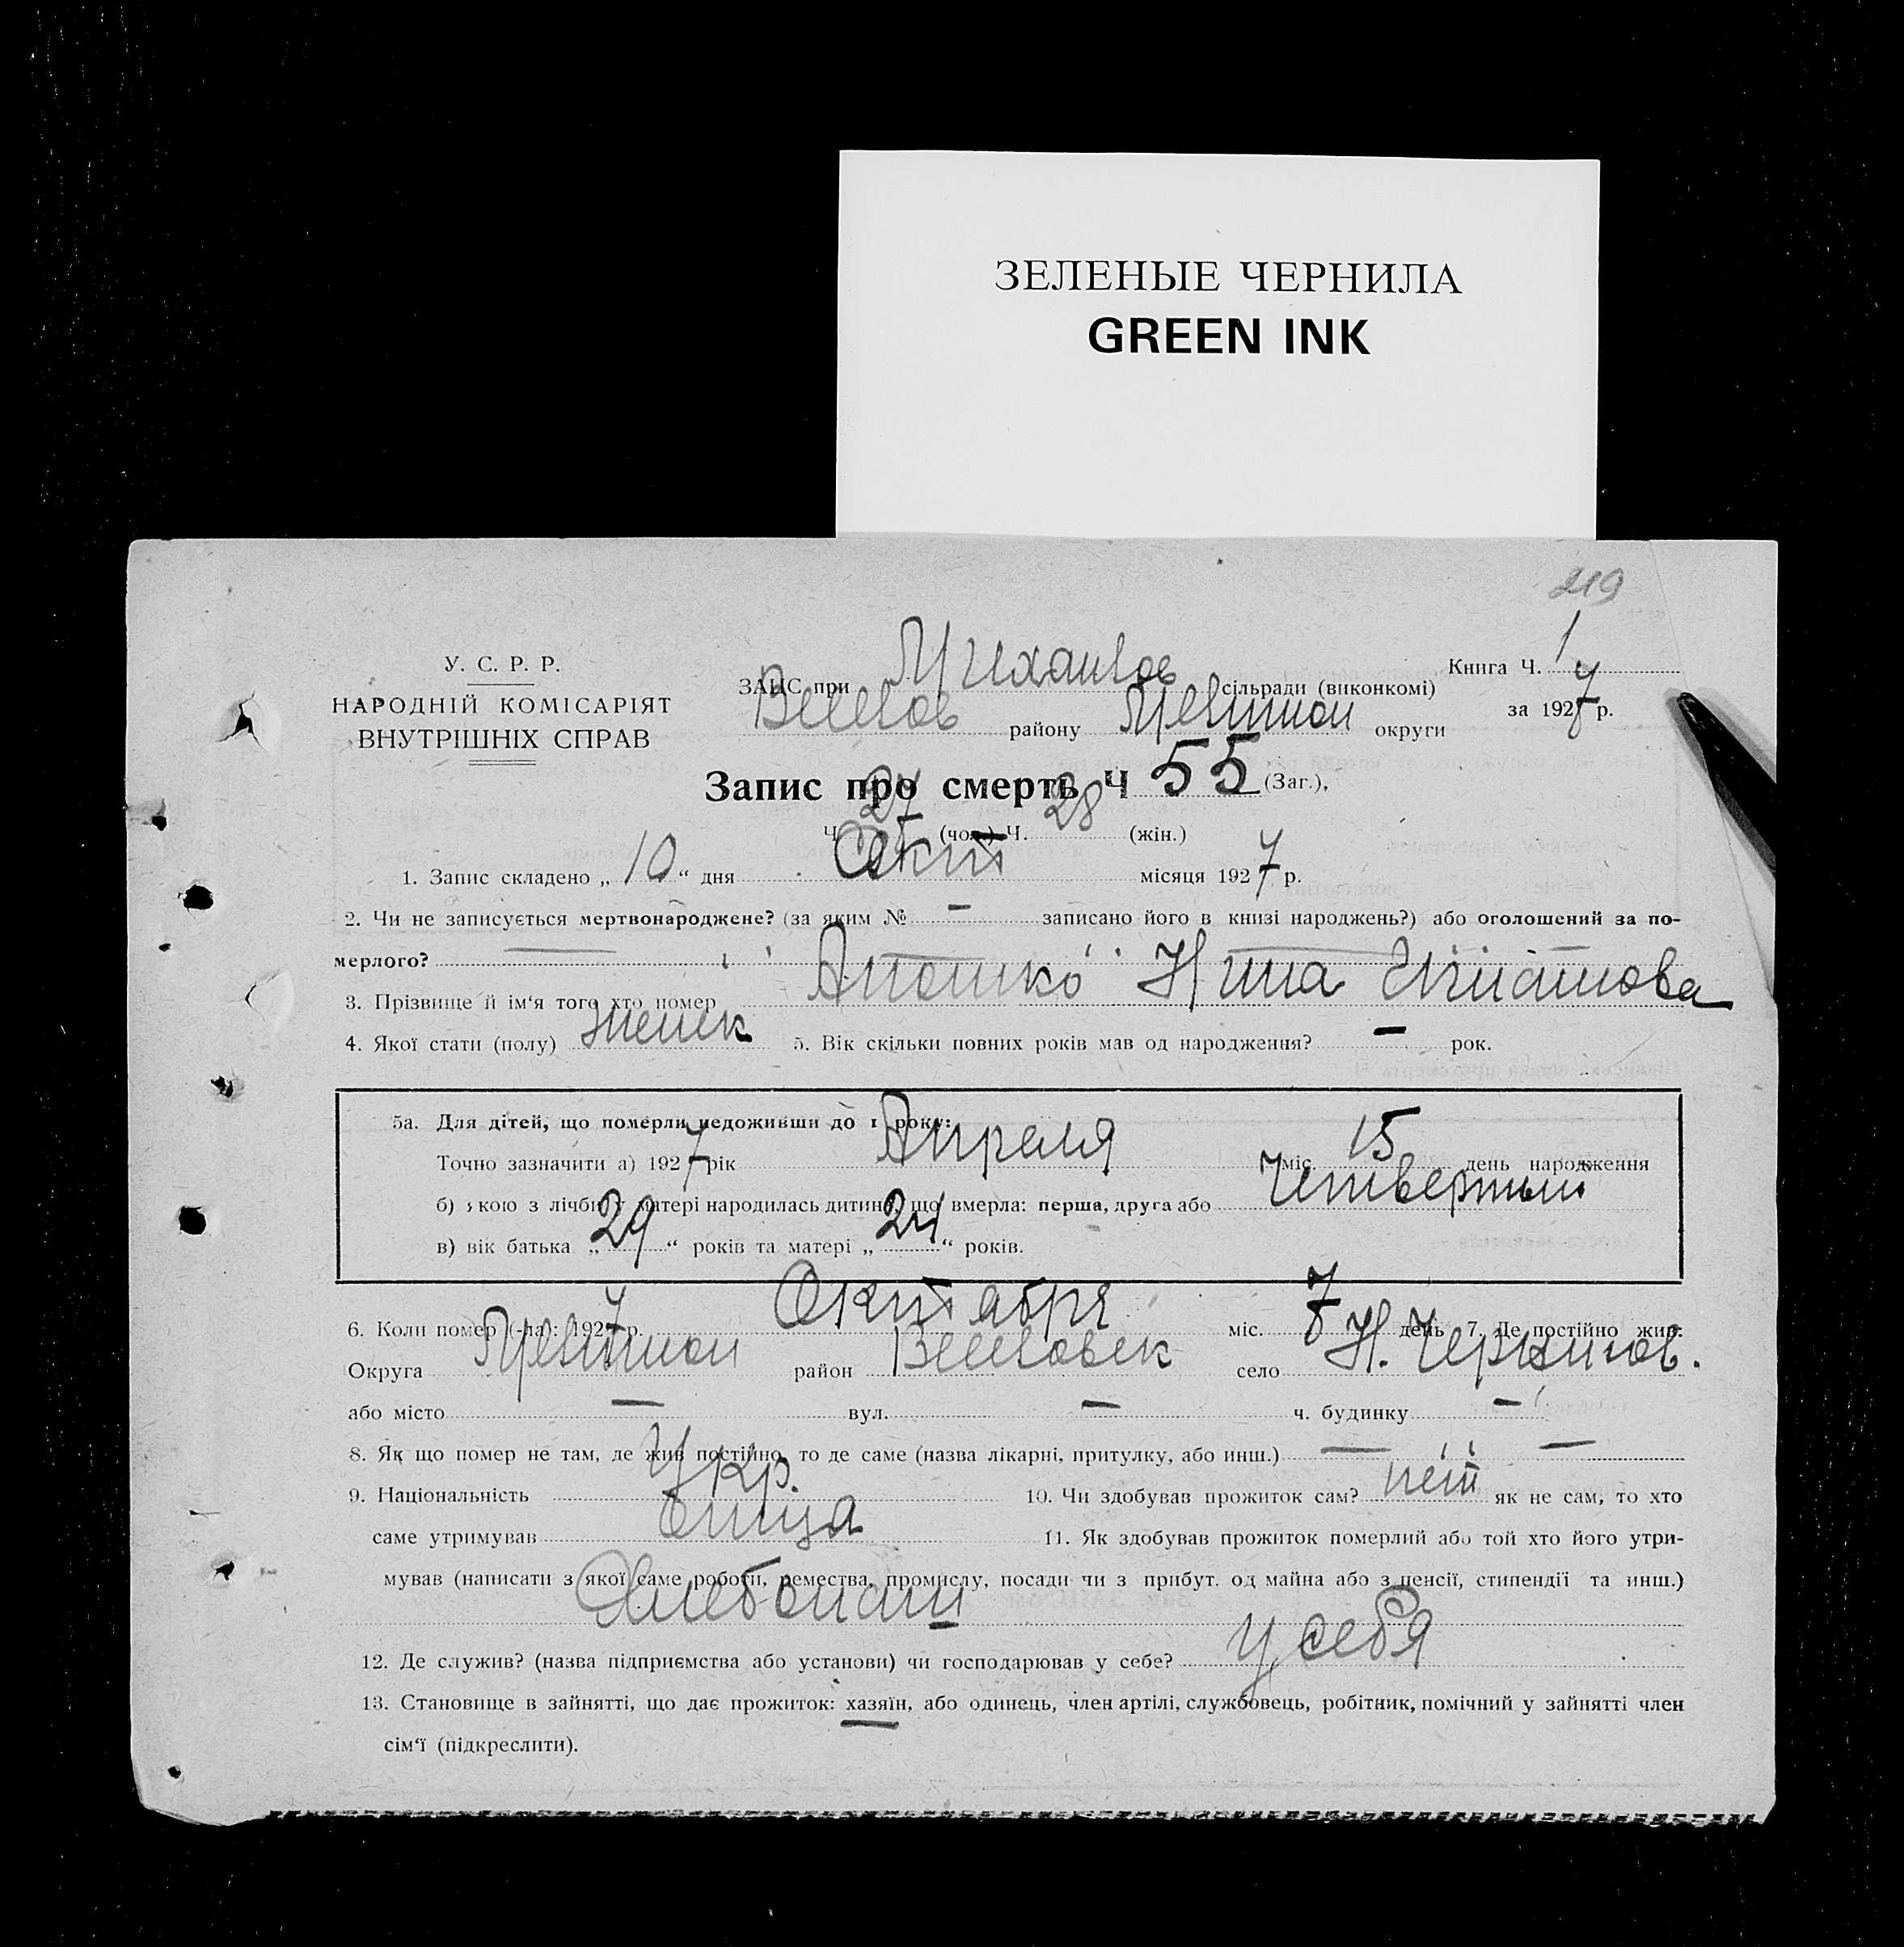 ЗЕЛЕНЫЕ ЧЕРНИЛА
GREEN INK
219
У. С. Р. Р.
НАРОДНІЙ КОМІСАРІЯТ
ВНУТРІШНІХ СПРАВ
Книга Ч. 1
за 1927 р.
ЗАЦС при Михайлов сільради (виконкомі)
Веселов району Мелитоп округи
Запис про смерть Ч 55 (Заг.),
Ч. 27 (чол.) Ч. 28 (жін.)
1. Запис складено „ 10 “ дня Окт місяця 1927 р.
2. Чи не записується мертвонароджене? (за яким № — записано його в книзі народжень?) або оголошений за по-
мерлого? —
3. Прізвище й ім‘я того хто помер Нина Игнатова
4. Якої стати (полу) женск 5. Вік скільки повних років мав од народження? — рок.
5а. Для дітей, що померли недоживши до 1 року:
Точно зазначити а) 1927 рік Апреля міс. 15 день народження
б) якою з лічби у матері народилась дитина, що вмерла: перша, друга або Четвертый
в) вік батька „ 29 “ років та матері „ 24 “ років.
6. Коли помер (-ла): 1927 р. Октября міс. 7 день 7. Де постійно жив:
Округа Мелитоп район Веселовск село Н. Чернигов.
або місто — вул. — ч. будинку —
8. Як що помер не там, де жив постійно, то де саме (назва лікарні, притулку, або инш.) — —
9. Національність Укр. 10. Чи здобував прожиток сам? нет як не сам, то хто
саме утримував отца 11. Як здобував прожиток померлий або той хто його утри-
мував (написати з якої саме роботи, ремества, промислу, посади чи з прибут. од майна або з пенсії, стипендії та инш.)
Хлебопаш
12. Де служив? (назва підприємства або установи) чи господарював у себе? у себя
13. Становище в зайнятті, що дає прожиток: хазяїн, або одинець, член артілі, службовець, робітник, помічний у зайнятті член
сім‘ї (підкреслити).